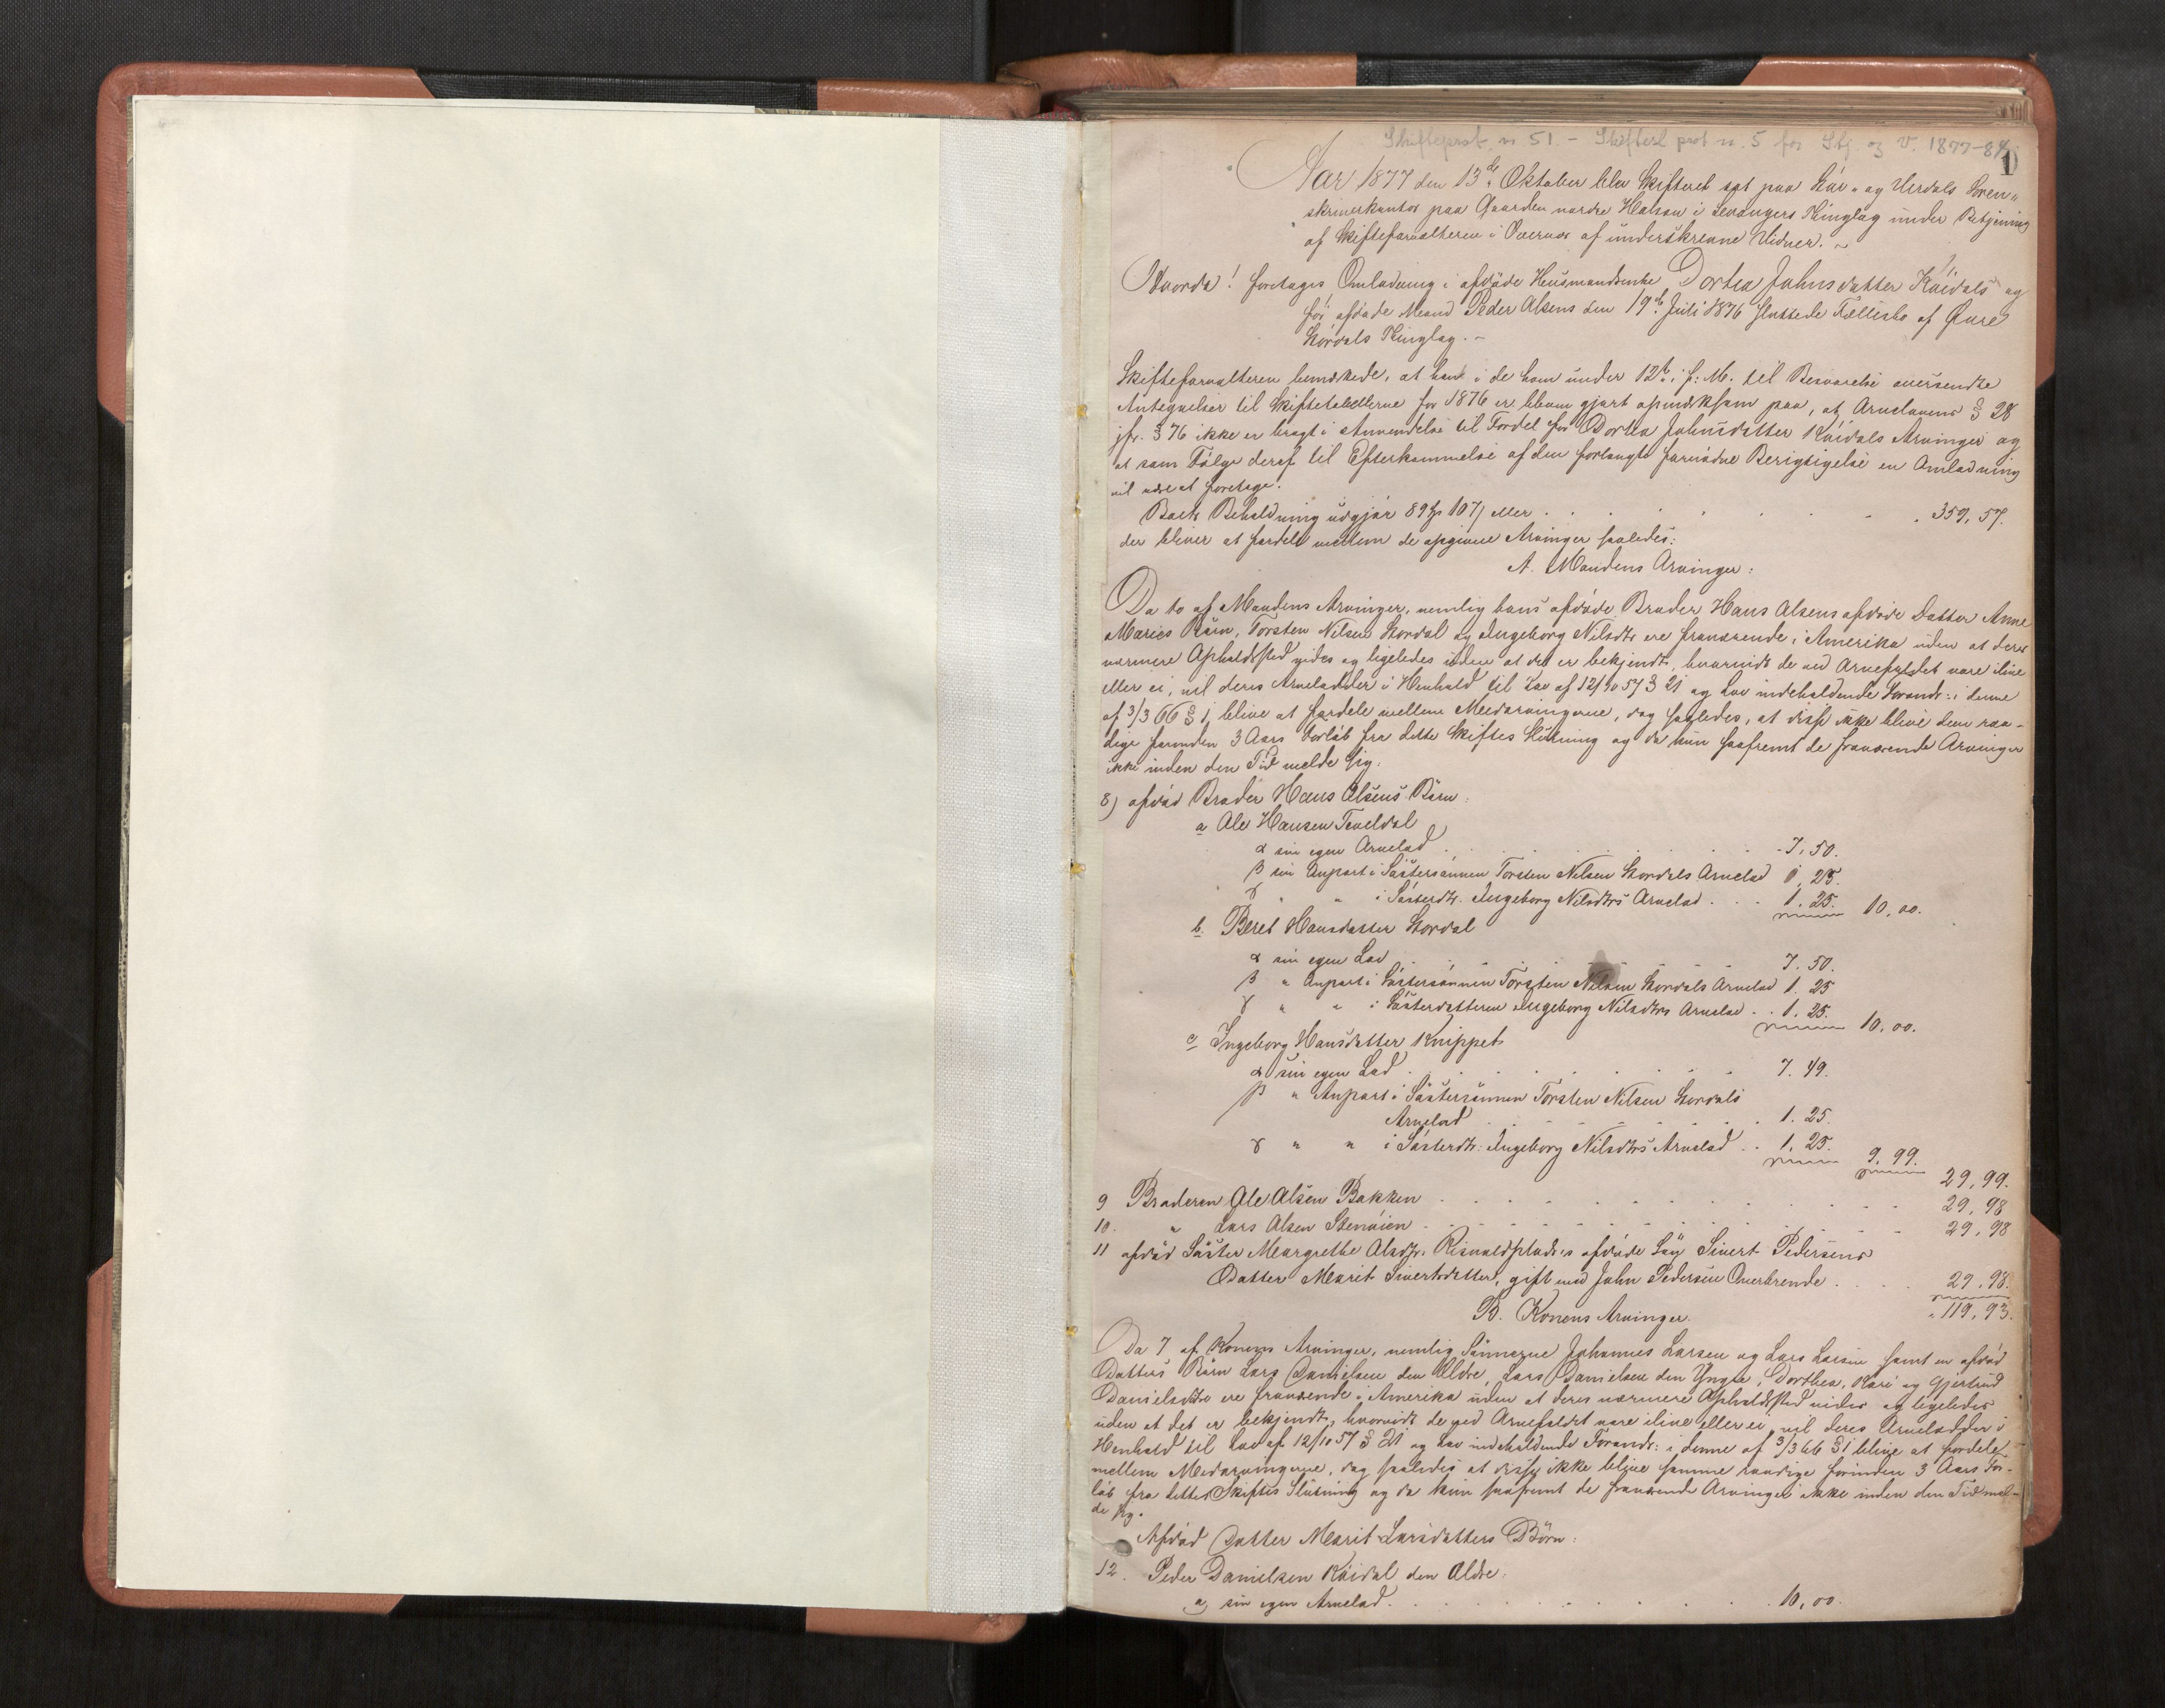 Skifteprot. n 51. - Skifteslprot n. 5 for Stj. og V. 1877-84
1
Aar 1877 den 13de Oktober blev Skifteret sat paa Stör- og Verdals Soren-
skriverkontor paa Gaarden nordre Halsan i Levangers Thinglag under Betjening
af Skifteforvalteren i Overvær af underskrevne Vidner. ~
Hvorda! foretages Omlodning i afdöde Husmandsenke Dorthea Johnsdatter Kåidals og
för afdöde Mand Peder Olsens den 19de Juli 1876 sluttede Fællesbo af Övre
Stördals Thinglag. -
Skifteforvalteren bemærkede, at han i de ham under 12te i f: M. til Besvarelse oversendte
Antegnelser til Skiftetabellerne for 1876 er bleven gjort opmærksom paa, at Arvelovens § 28
jfr. § 76 ikke er bragt i Anvendelse til Fordel for Dorthea Johnsdatter Kåidals Arvinger og
at som Fölge deraf til Efterkommelse af den forlangte fornödne Berigtigelse en Omlodning
vil være at foretage.
Boets Beholdning udgjör 89 Spd 107 s eller . . . 359,57.
der bliver at fordele mellem de opgivne Arvinger saaledes:
A. Mandens Arvinger:
Da to af Mandens Arvinger, nemlig hans afdöde Broder Hans Olsens afdöde Datter Anne
Maries Börn, Torsten Nilsen Stordal og Ingeborg Nilsdtr ere fraværende i Amerika uden at deres
nærmere Opholdssted vides og ligeledes uden at det er bekjendt, hvorvidt de ved Arvefaldet vare ilive
eller ei, vil deres Arvelodder i Henhold til Lov af 12/10 57 § 21 og Lov indeholdende Forandr: i denne
af 3/3 66 § 1, blive at fordele mellem Medarvingerne, dog saaledes, at disse ikke blive dem raa-
dige forinden 3 Aars Forlöb fra dette Skiftes Slutning og da kun saafremt de fraværende Arvinger
ikke inden den Tid melde sig.
8) afdöd Broder Hans Olsens Börn:
a Ole Hansen Teveldal
α sin egen Arvelod . . . 7,50.
β sin Anpart i Söstersönnen Torsten Nilsen Stordals Arvelod 1,25.
γ " " i Sösterdtr. Ingeborg Nilsdtrs Arvelod . . . 1.25. 10,00.
b. Beret Hansdatter Stordal
α sin egen Lod . . . 7.50.
β " Anpart i Söstersönnen Torsten Nilsen Stordals Arvelod 1.25
γ " " i Sösterdatteren Ingeborg Nilsdtrs Arvelod . . 1.25. 10,00.
c Ingeborg Hansdatter Knippet
α sin egen Lod . . . 7.49.
β " Anpart i Söstersönnen Torsten Nilsen Stordals
Arvelod . . . 1.25.
γ " " i Sösterdtr: Ingeborg Nilsdtrs Arvelod . . 1.25. 9.99. 29,99.
9 Broderen Ole Olsen Bakken . . . 29,98
10. " Lars Olsen Stenöien . . . 29,98
11 afdöd Söster Margrethe Olsdtr. afdöde Sön Sivert Pedersens
Datter Marit Sivertsdatter, gift med John Pedersen . . . 29,98.
119,93.
B. Konens Arvinger.
Da 7 af Konens Arvinger, nemlig Sönnerne Johannes Larsen og Lars Larsen samt en afdöd
Datters Börn Lars Danielsen den Ældre, Lars Danielsen den Yngre, Dorthea, Kari og Gjertrud
Danielsdtre ere fraværende i Amerika uden at deres nærmere Opholdssted vides og ligeledes
uden at det er bekjendt, hvorvidt de ved Arvefaldet vare ilive eller ei, vil deres Arvelodder i
Henhold til Lov af 12/10 57 § 21 og Lov indeholdende Forandr: i denne af 3/3 66 § 1 blive at fordele
mellem Medarvingerne, dog saaledes at disse ikke blive samme raadige forinden 3 Aars For-
löb fra dette Skiftes Slutning og da kun saafremt de fraværende Arvinger ikke inden den Tid mel-
de sig.
Afdöd Datter Marit Larsdatters Börn:
12. Peder Danielsen Kåidal den Ældre:
a, sin egen Arvelod . . . 10,00.